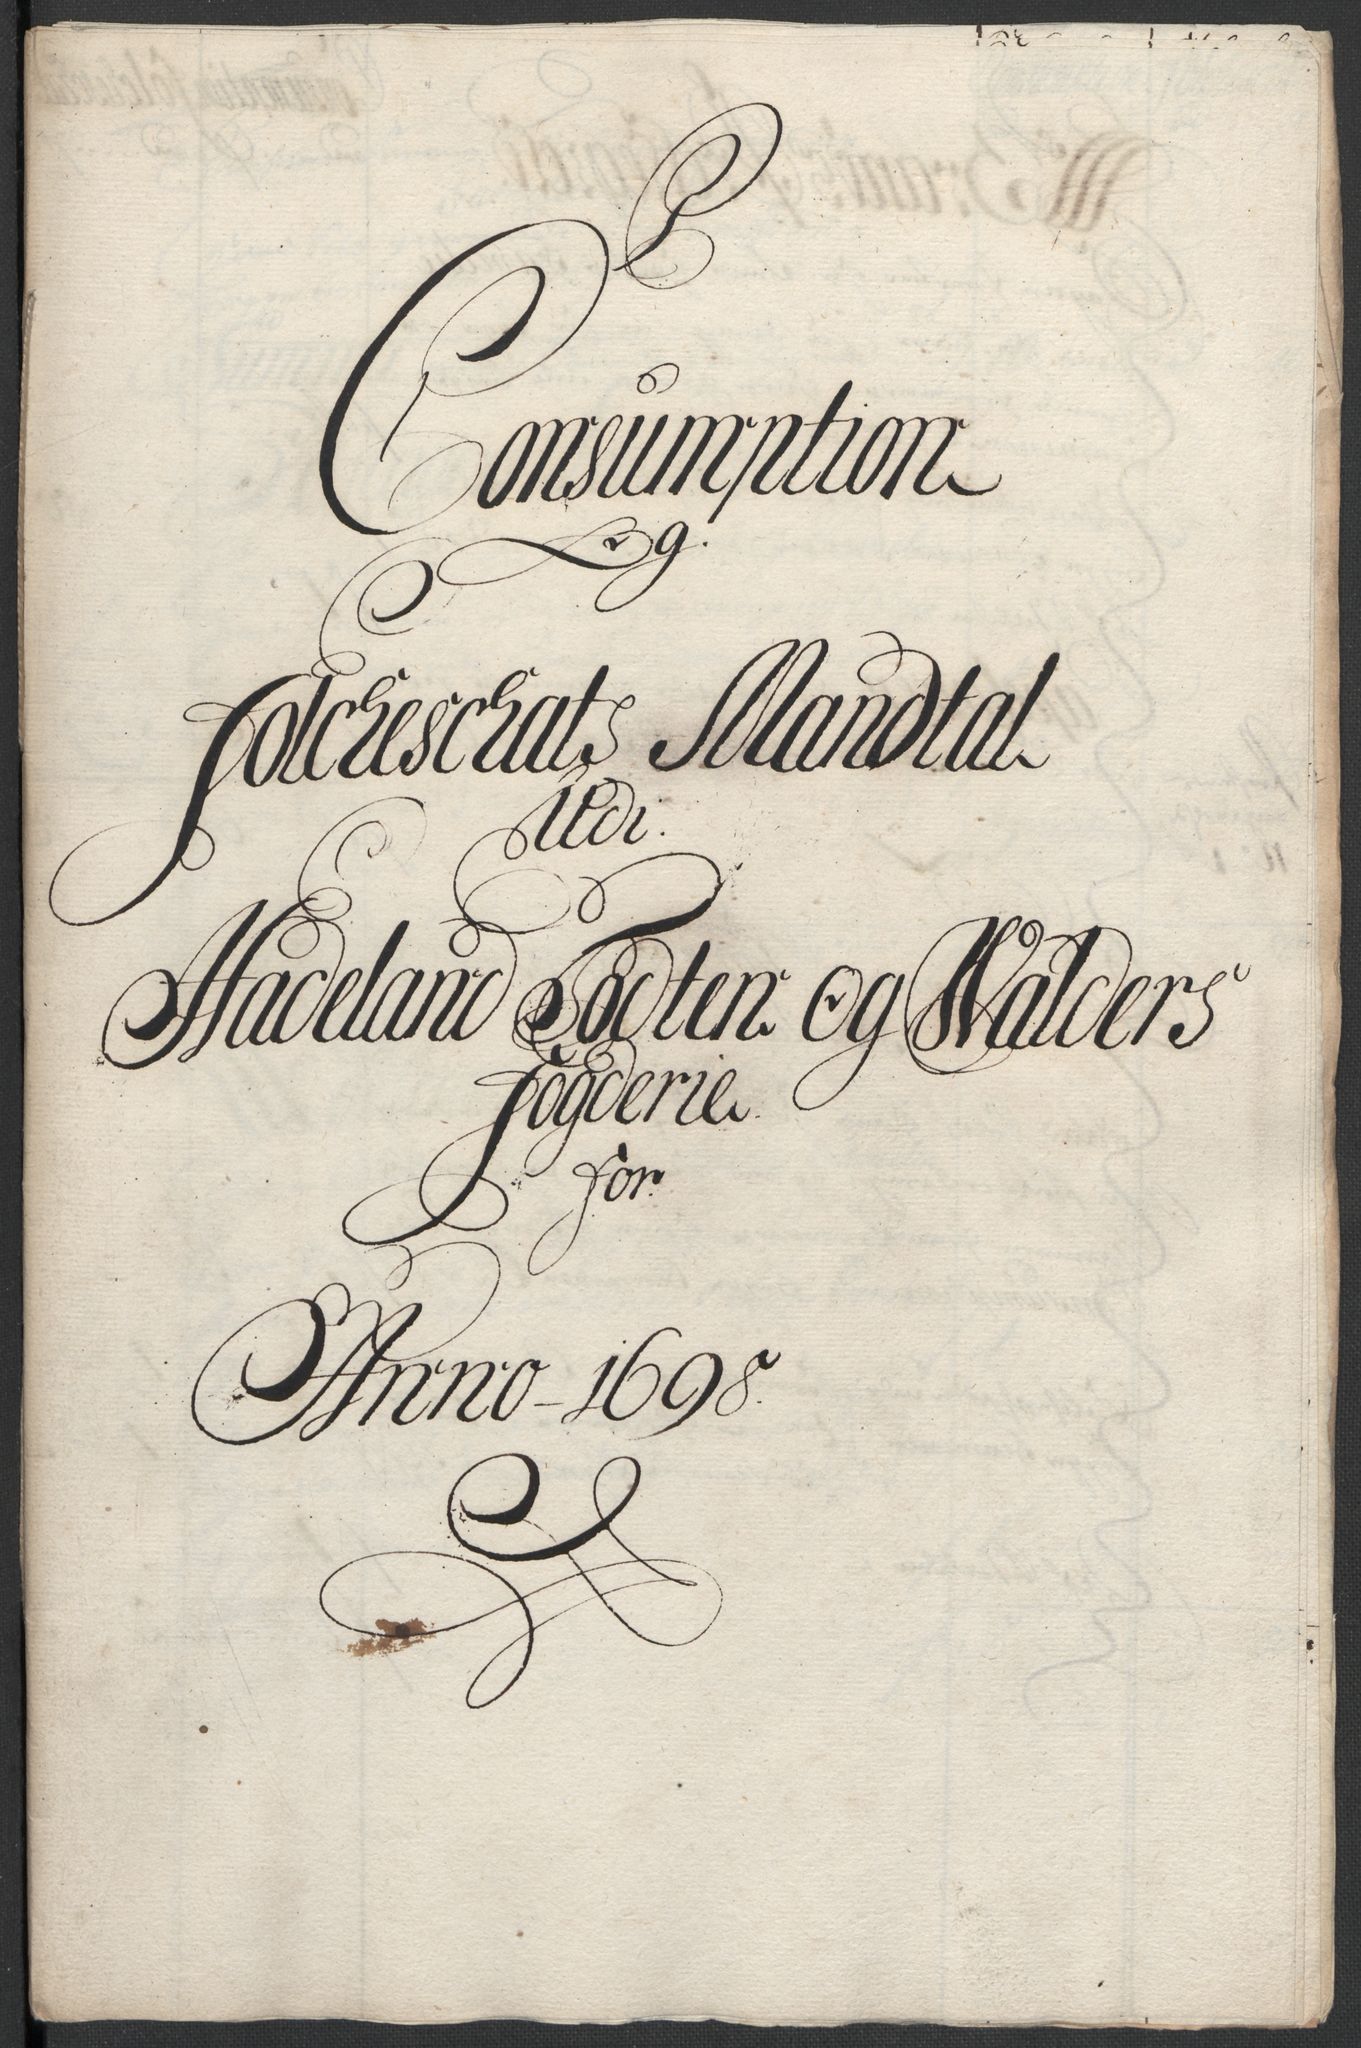 Consumption
Og
Folcheschats Mandtal
Udi
Hadeland Todten og Walders
Fogderie
for
Anno 1698